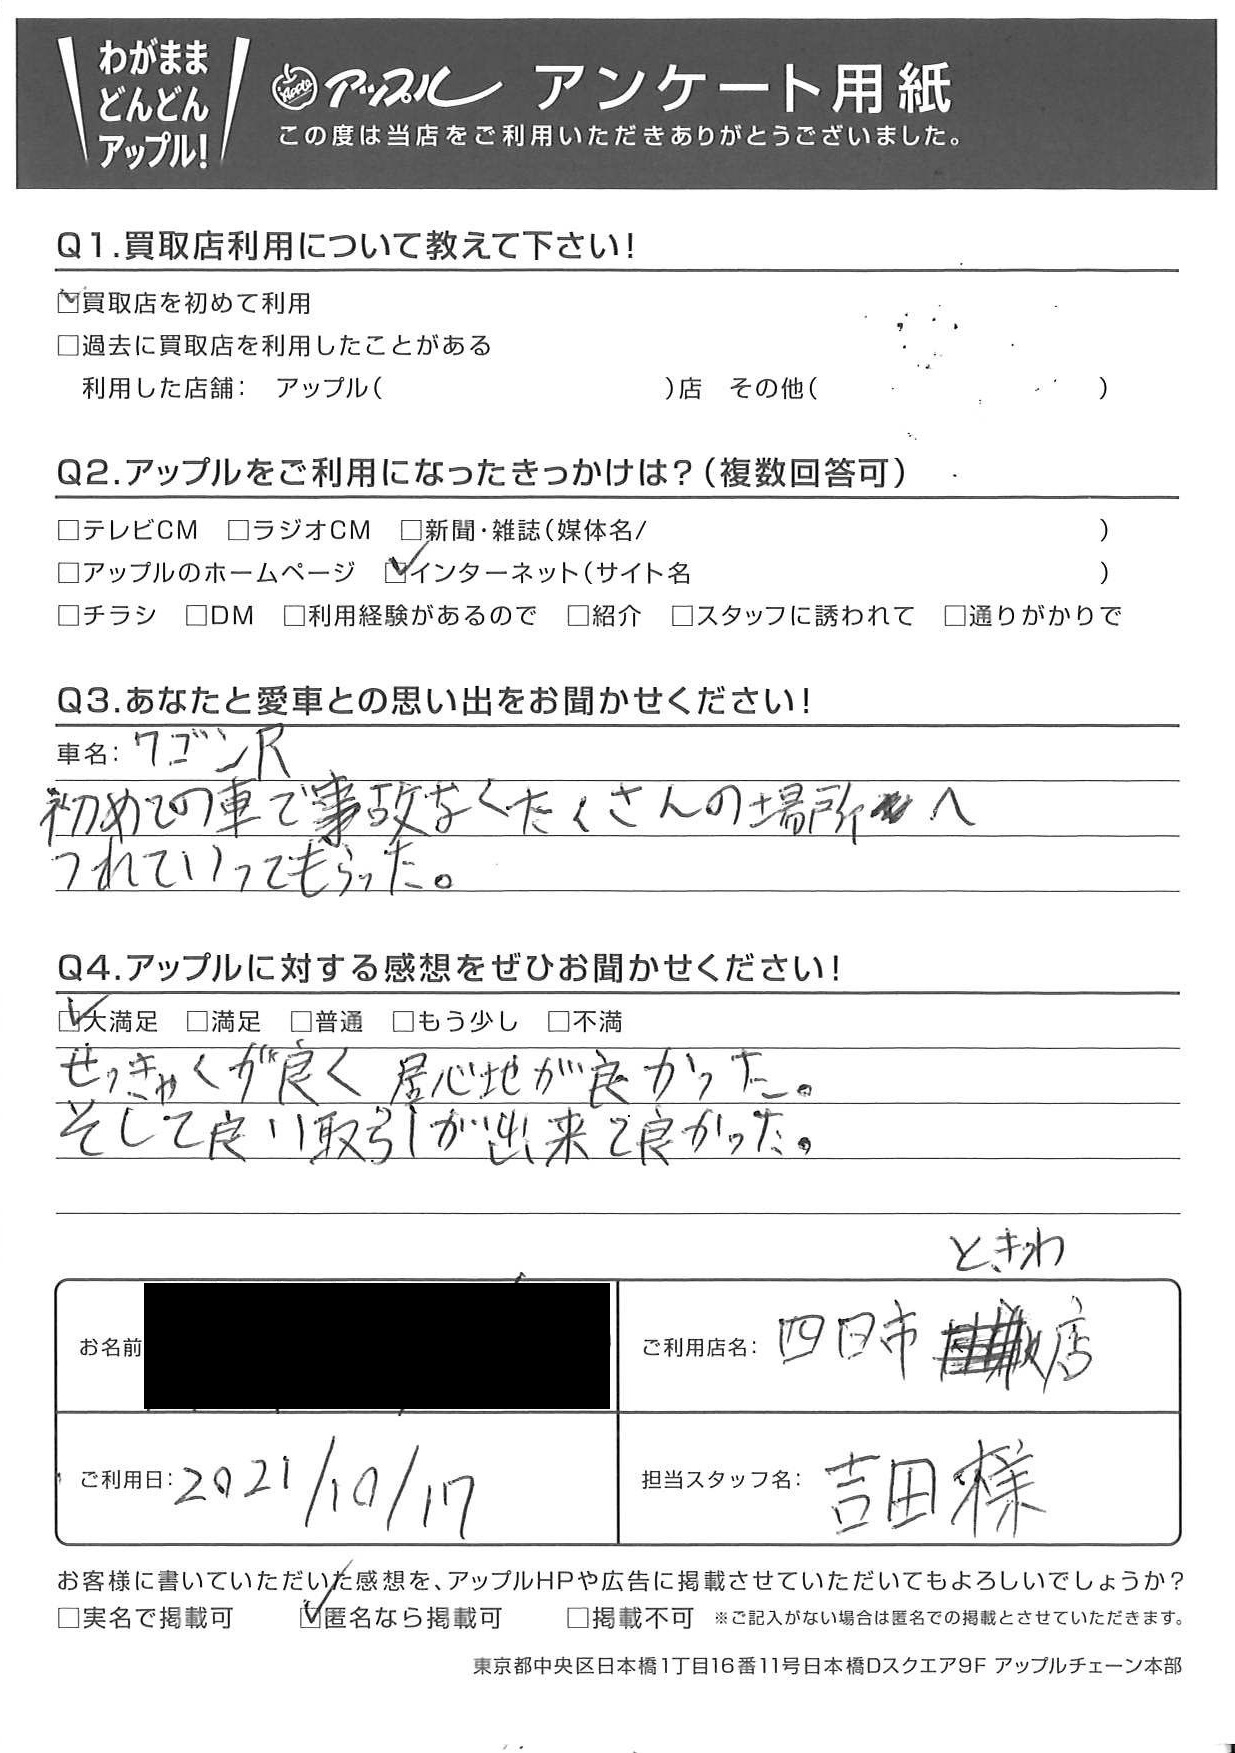 わがまま
どんどん
アップル!
Apple アップル アンケート用紙
この度は当店をご利用いただきありがとうございました。
Q1.買取店利用について教えて下さい!
☑買取店を初めて利用
□過去に買取店を利用したことがある
利用した店舗: アップル( )店 その他( )
Q2.アップルをご利用になったきっかけは?(複数回答可)
□テレビCM □ラジオCM □新聞・雑誌(媒体名/ )
□アップルのホームページ ☑インターネット(サイト名 )
□チラシ □DM □利用経験があるので □紹介 □スタッフに誘われて □通りがかりで
Q3.あなたと愛車との思い出をお聞かせください!
車名: ワゴンR
初めての車で事故なくたくさんの場所へ
つれていってもらった。
Q4.アップルに対する感想をぜひお聞かせください!
☑大満足 □満足 □普通 □もう少し □不満
せっきゃくが良く 居心地が良かった。
そして良い取引が出来て良かった。
ときわ
お名前
ご利用店名: 四日市 店
ご利用日: 2021/10/17
担当スタッフ名: 吉田様
お客様に書いていただいた感想を、アップルHPや広告に掲載させていただいてもよろしいでしょうか?
□実名で掲載可 ☑匿名なら掲載可 □掲載不可 ※ご記入がない場合は匿名での掲載とさせていただきます。
東京都中央区日本橋1丁目16番11号日本橋Dスクエア9F アップルチェーン本部